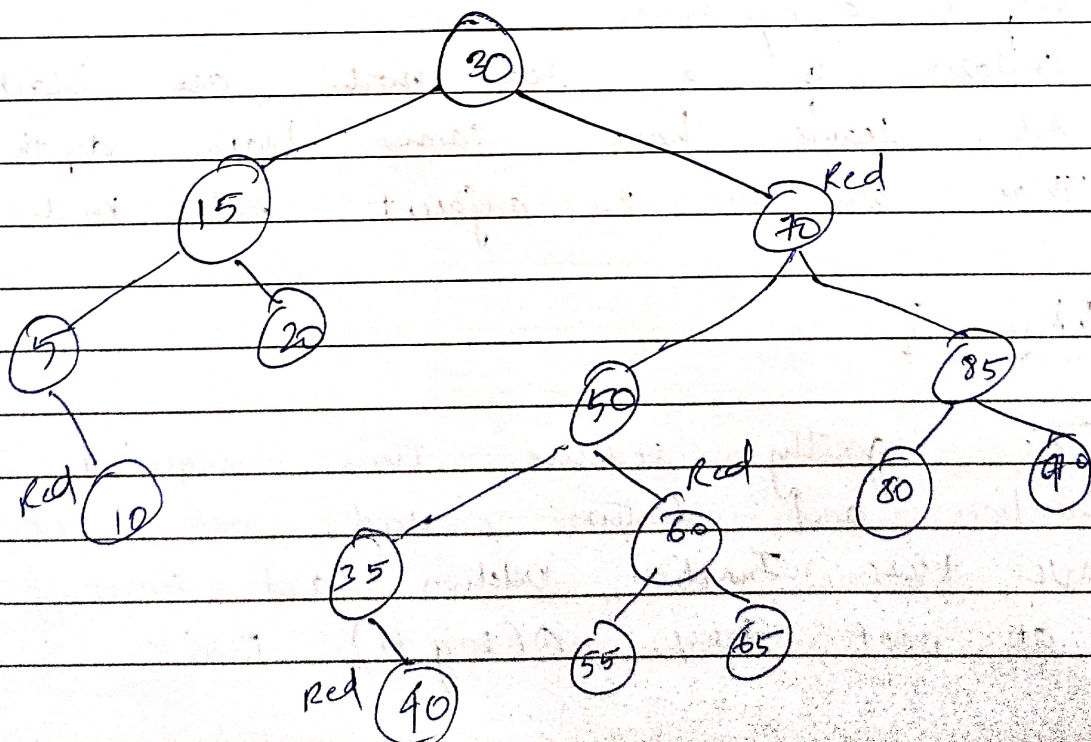 30
15
Red
70
5
20
50
85
Red
10
Red
60
80
90
35
55
65
Red
40